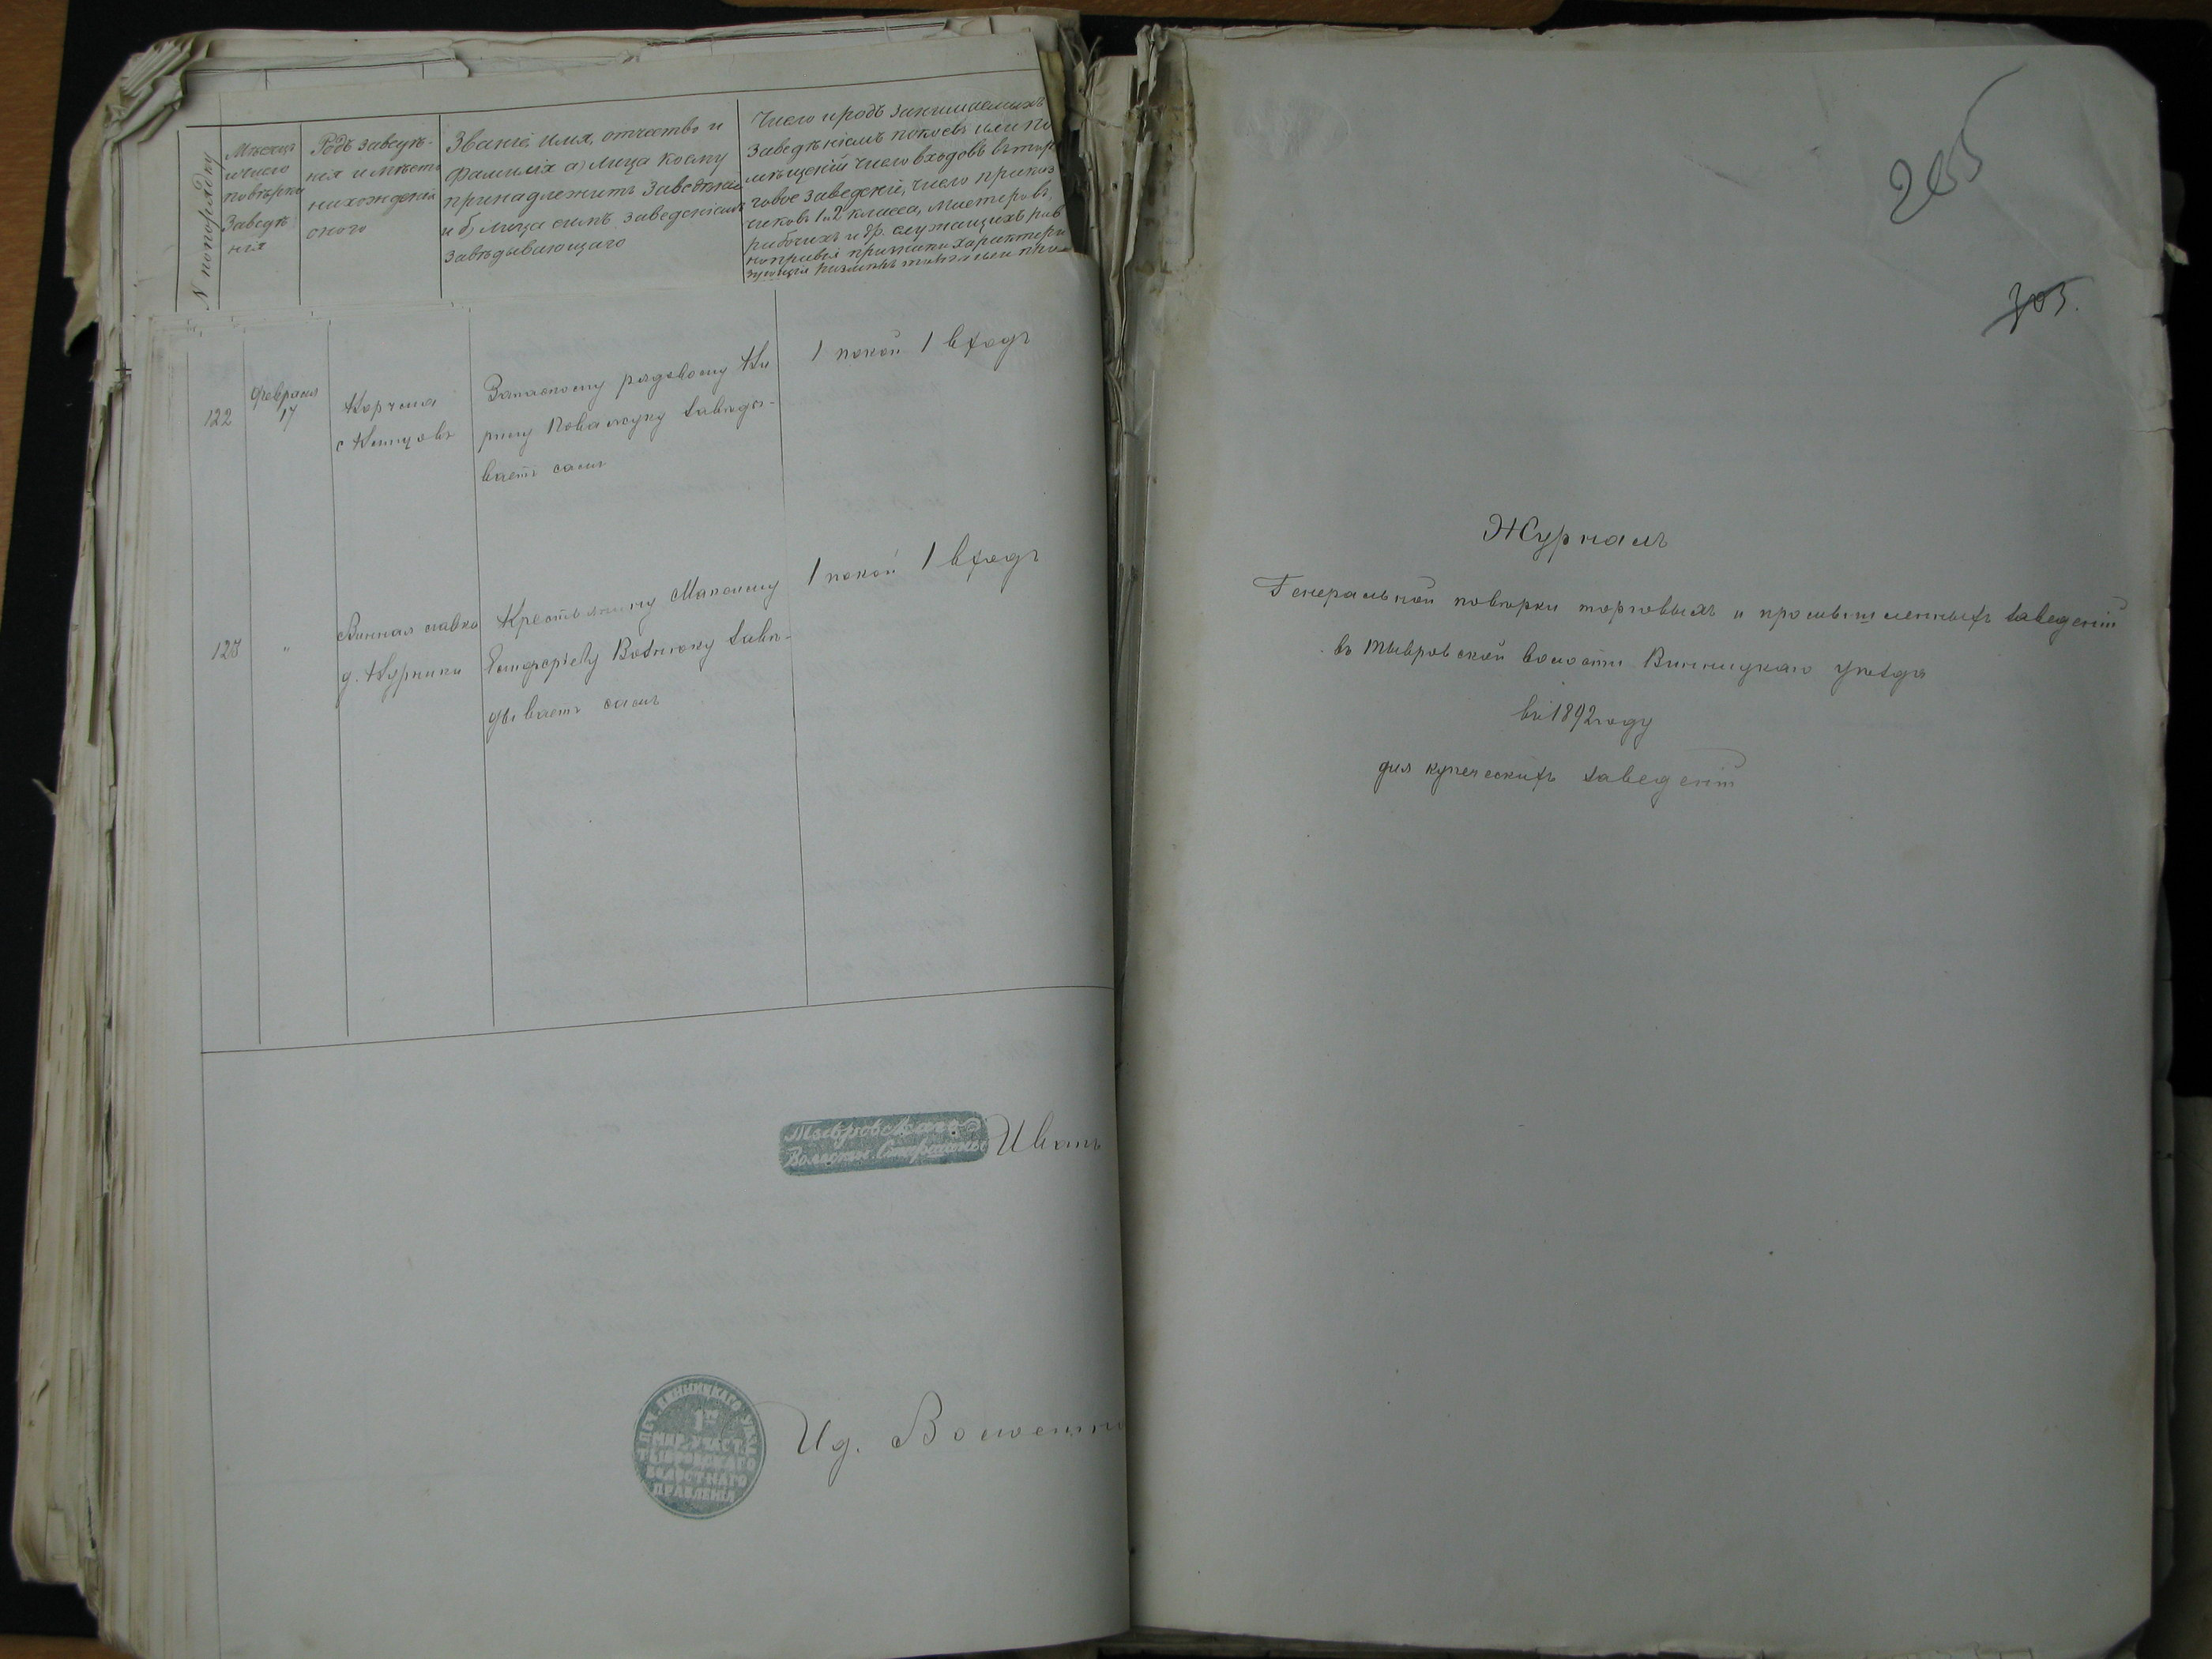 N попорядку
Мѣсяцъ
и число
повѣрки
Заведѣ
нія
Родъ заведѣ-
нія и мѣсто
нахожденія
онаго
Званіе, имя, отчество и
фамилія а) лица коему
принадлежитъ заведѣніе
и б) лица симъ заведеніемъ
завѣдывающаго
Число и родъ занимаемыхъ
заведѣніемъ покоевъ или по
мѣщеній число входовъ въ тор
говое заведеніе, число приказ
чиковъ 1 и 2 класса, мастеровъ,
рабочихъ и др. служащихъ рав
122
Февраля
17
Корчма
Запасному рядовому Ки
рилу Ковальчуку завѣды-
ваетъ самъ
1 покой 1 входъ
123
"
Винная лавка
д. Курники
Крестьянину Максиму
завѣ-
дываетъ самъ
1 покой 1 входъ
Тывровскаго
Волостн. Старшина
Иванъ
ПОД. ВИННИЦКАГО УѢЗДА
1го
МИР. УЧАСТ.
ТЫВРОВСКАГО
ВОЛОСТНАГО
ПРАВЛЕНІЯ
Ид. Волостно
265
303.
Журналъ
Генеральной повѣрки торговыхъ и промышленныхъ заведеній
въ Тывровской волости Винницкаго уѣзда
въ 1892 году
для купеческихъ заведеній